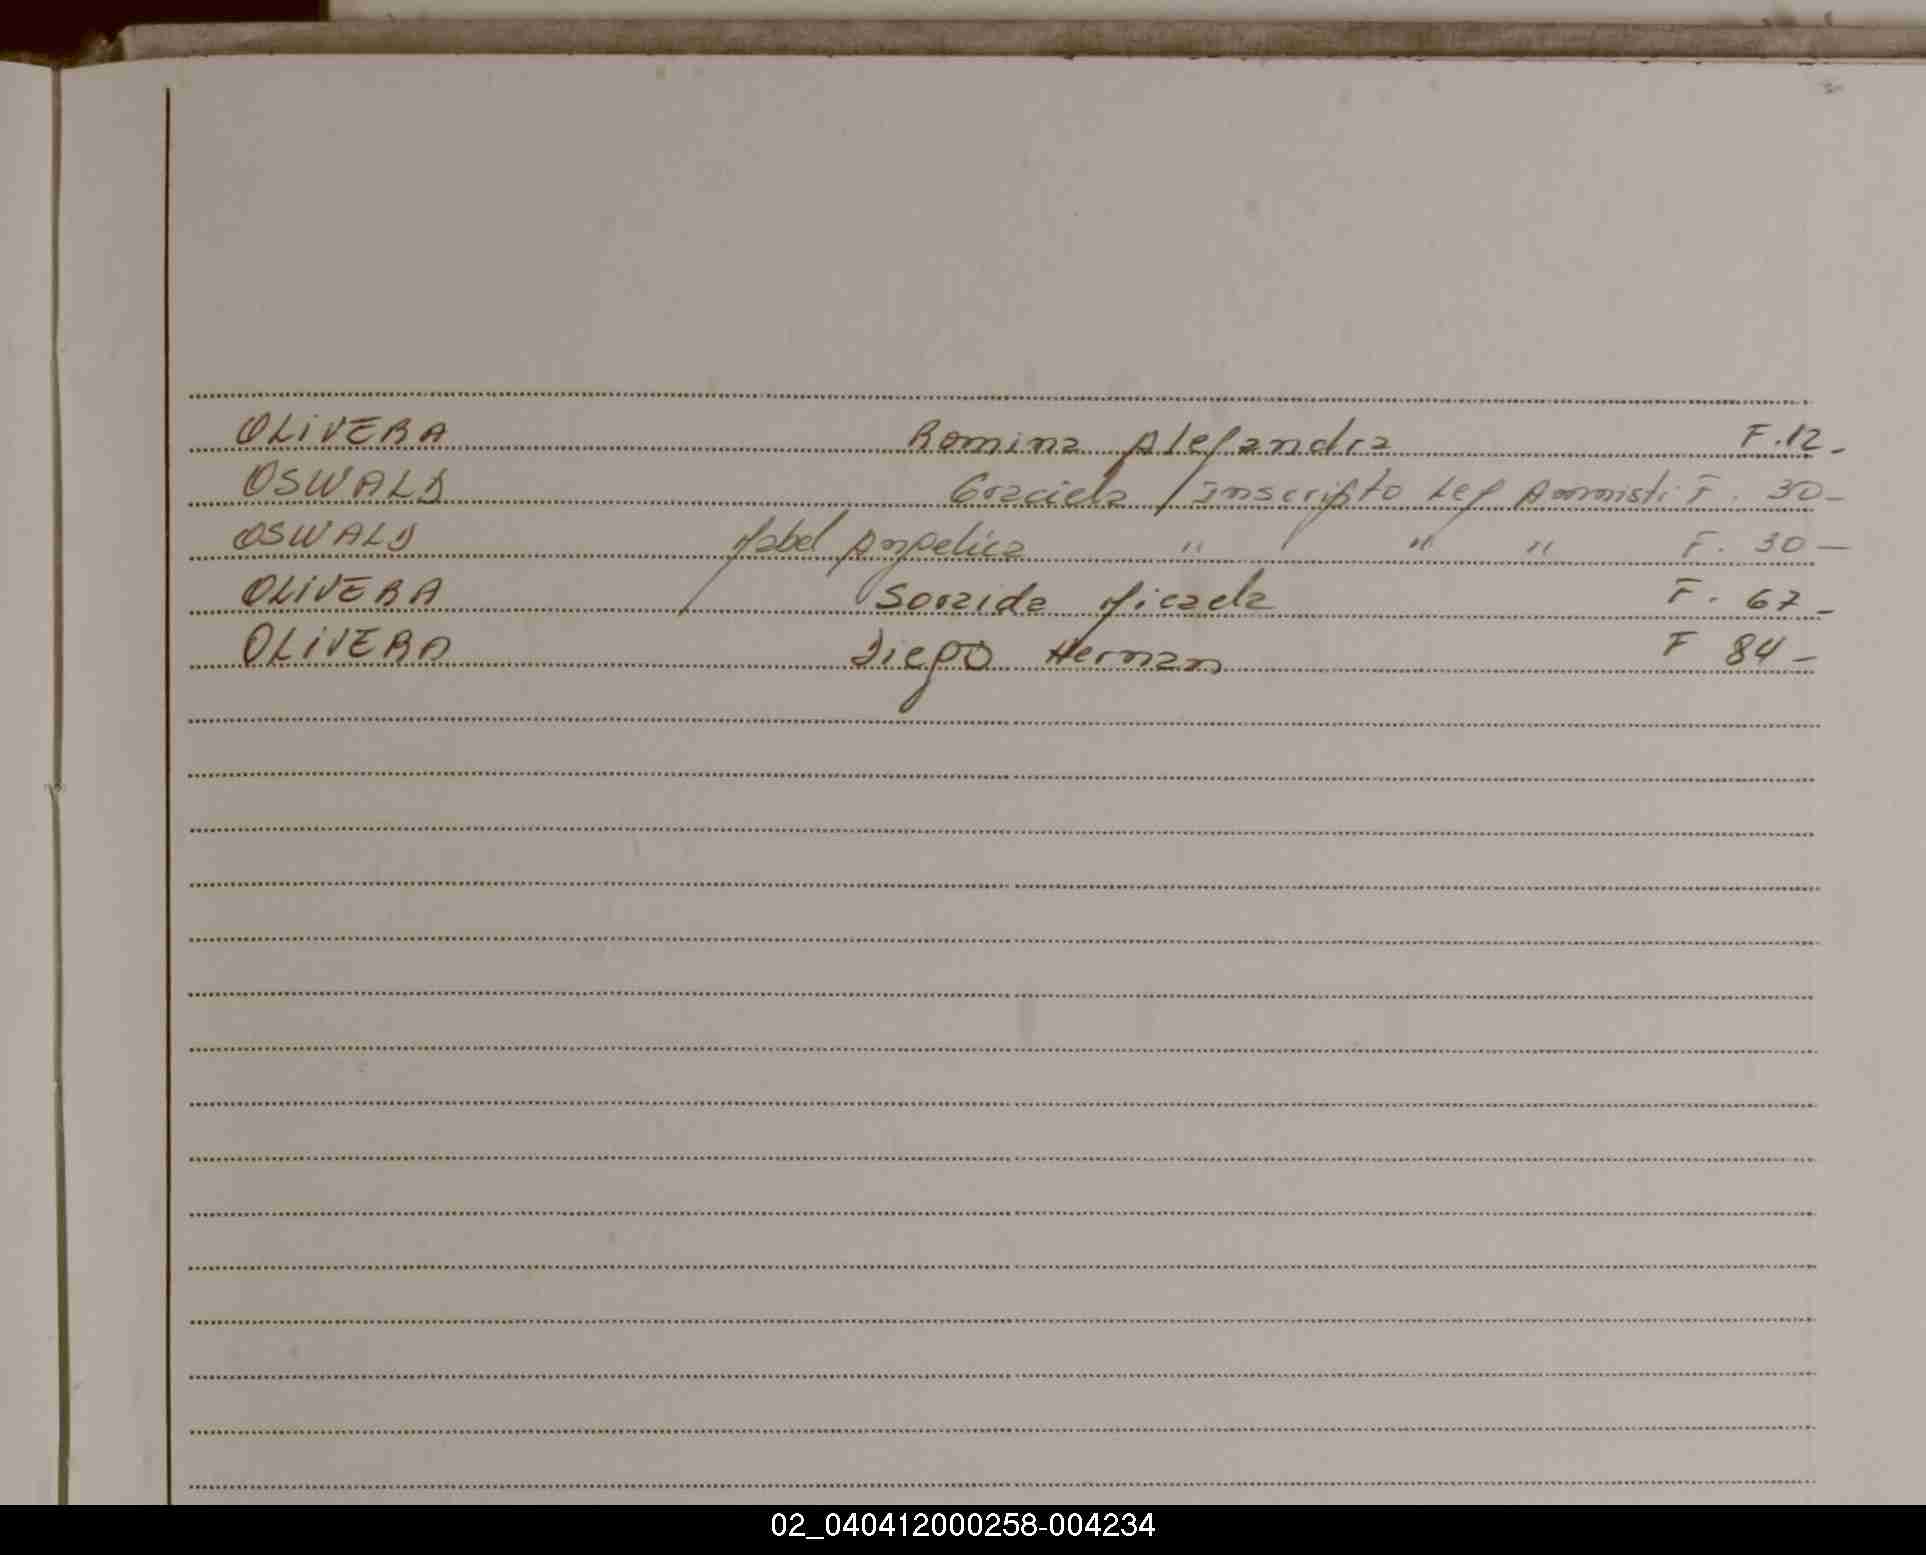 OLIVERA Romina Alejandra F. 12 -
OSWALD Graciela / Inscripto Ley Ammisti F. 30 -
OSWALD Mabel Angelica " " " F. 30 -
OLIVERA Soraida Micaela F. 67 -
OLIVERA Diego Hernan F 84 -
02_040412000258-004234